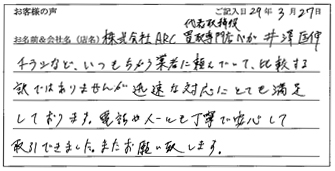 お客様の声 ご記入日 29年 3月 27日
代表取締役
お名前&会社名(店名) 株式会社ARC 買取専門店 井澤
チラシなど、いつもちがう業者に頼んでいて、比較する
訳ではありませんが迅速な対応にとても満足
しております。電話や人にも丁寧で安心して
取引できました。またお願い致します。